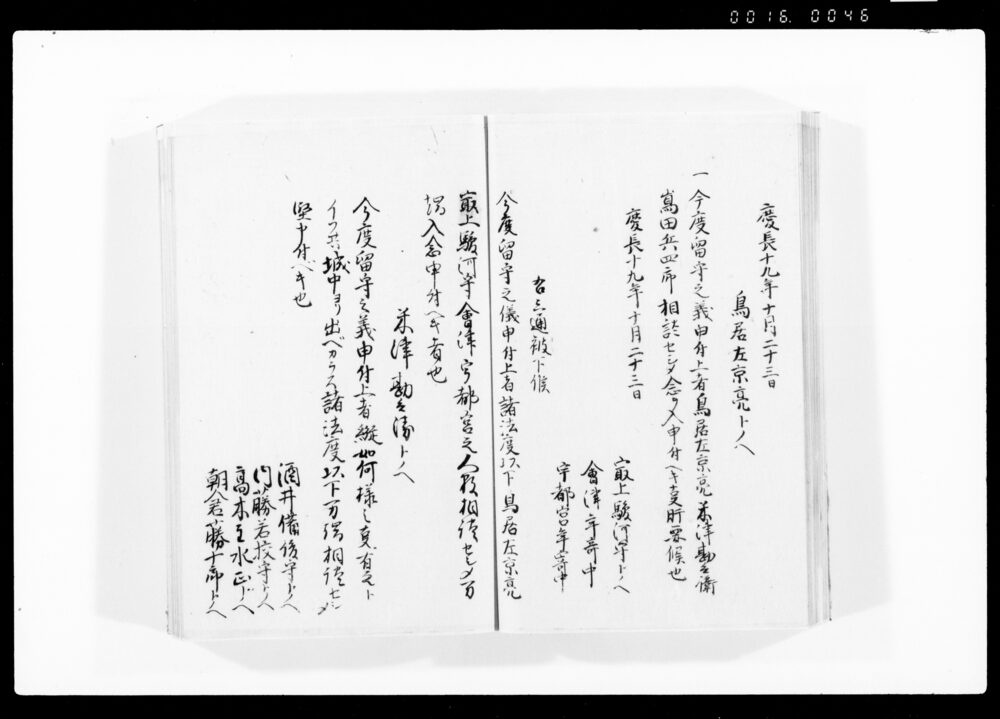 0016. 0046
慶長十九年十月二十三日
鳥居左京亮トノヘ
一今度留守之義申付上者鳥居左京亮米津勘兵衛
嶌田兵四郎相談セシメ念ヲ入申付ヘキ事肝要候也
慶長十九年十月二十三日
最上駿河守トノヘ
會津年寄中
宇都宮年寄中
右三通被下候
今度留守之儀申付上者諸法度以下鳥居左京亮
最上駿河守會津宇都宮之人数相談セシメ万
端入念申付ヘキ者也
米津勘兵衛トノヘ
今度留守之義申付上者縦如何様之事有之ト
イフ共城中ヨリ出ベカラス諸法度以下万端相談セシメ
堅申付ベキ也
酒井備後守トノヘ
内藤若狭守トノヘ
高木主水正トノヘ
朝倉藤十郎トノヘ